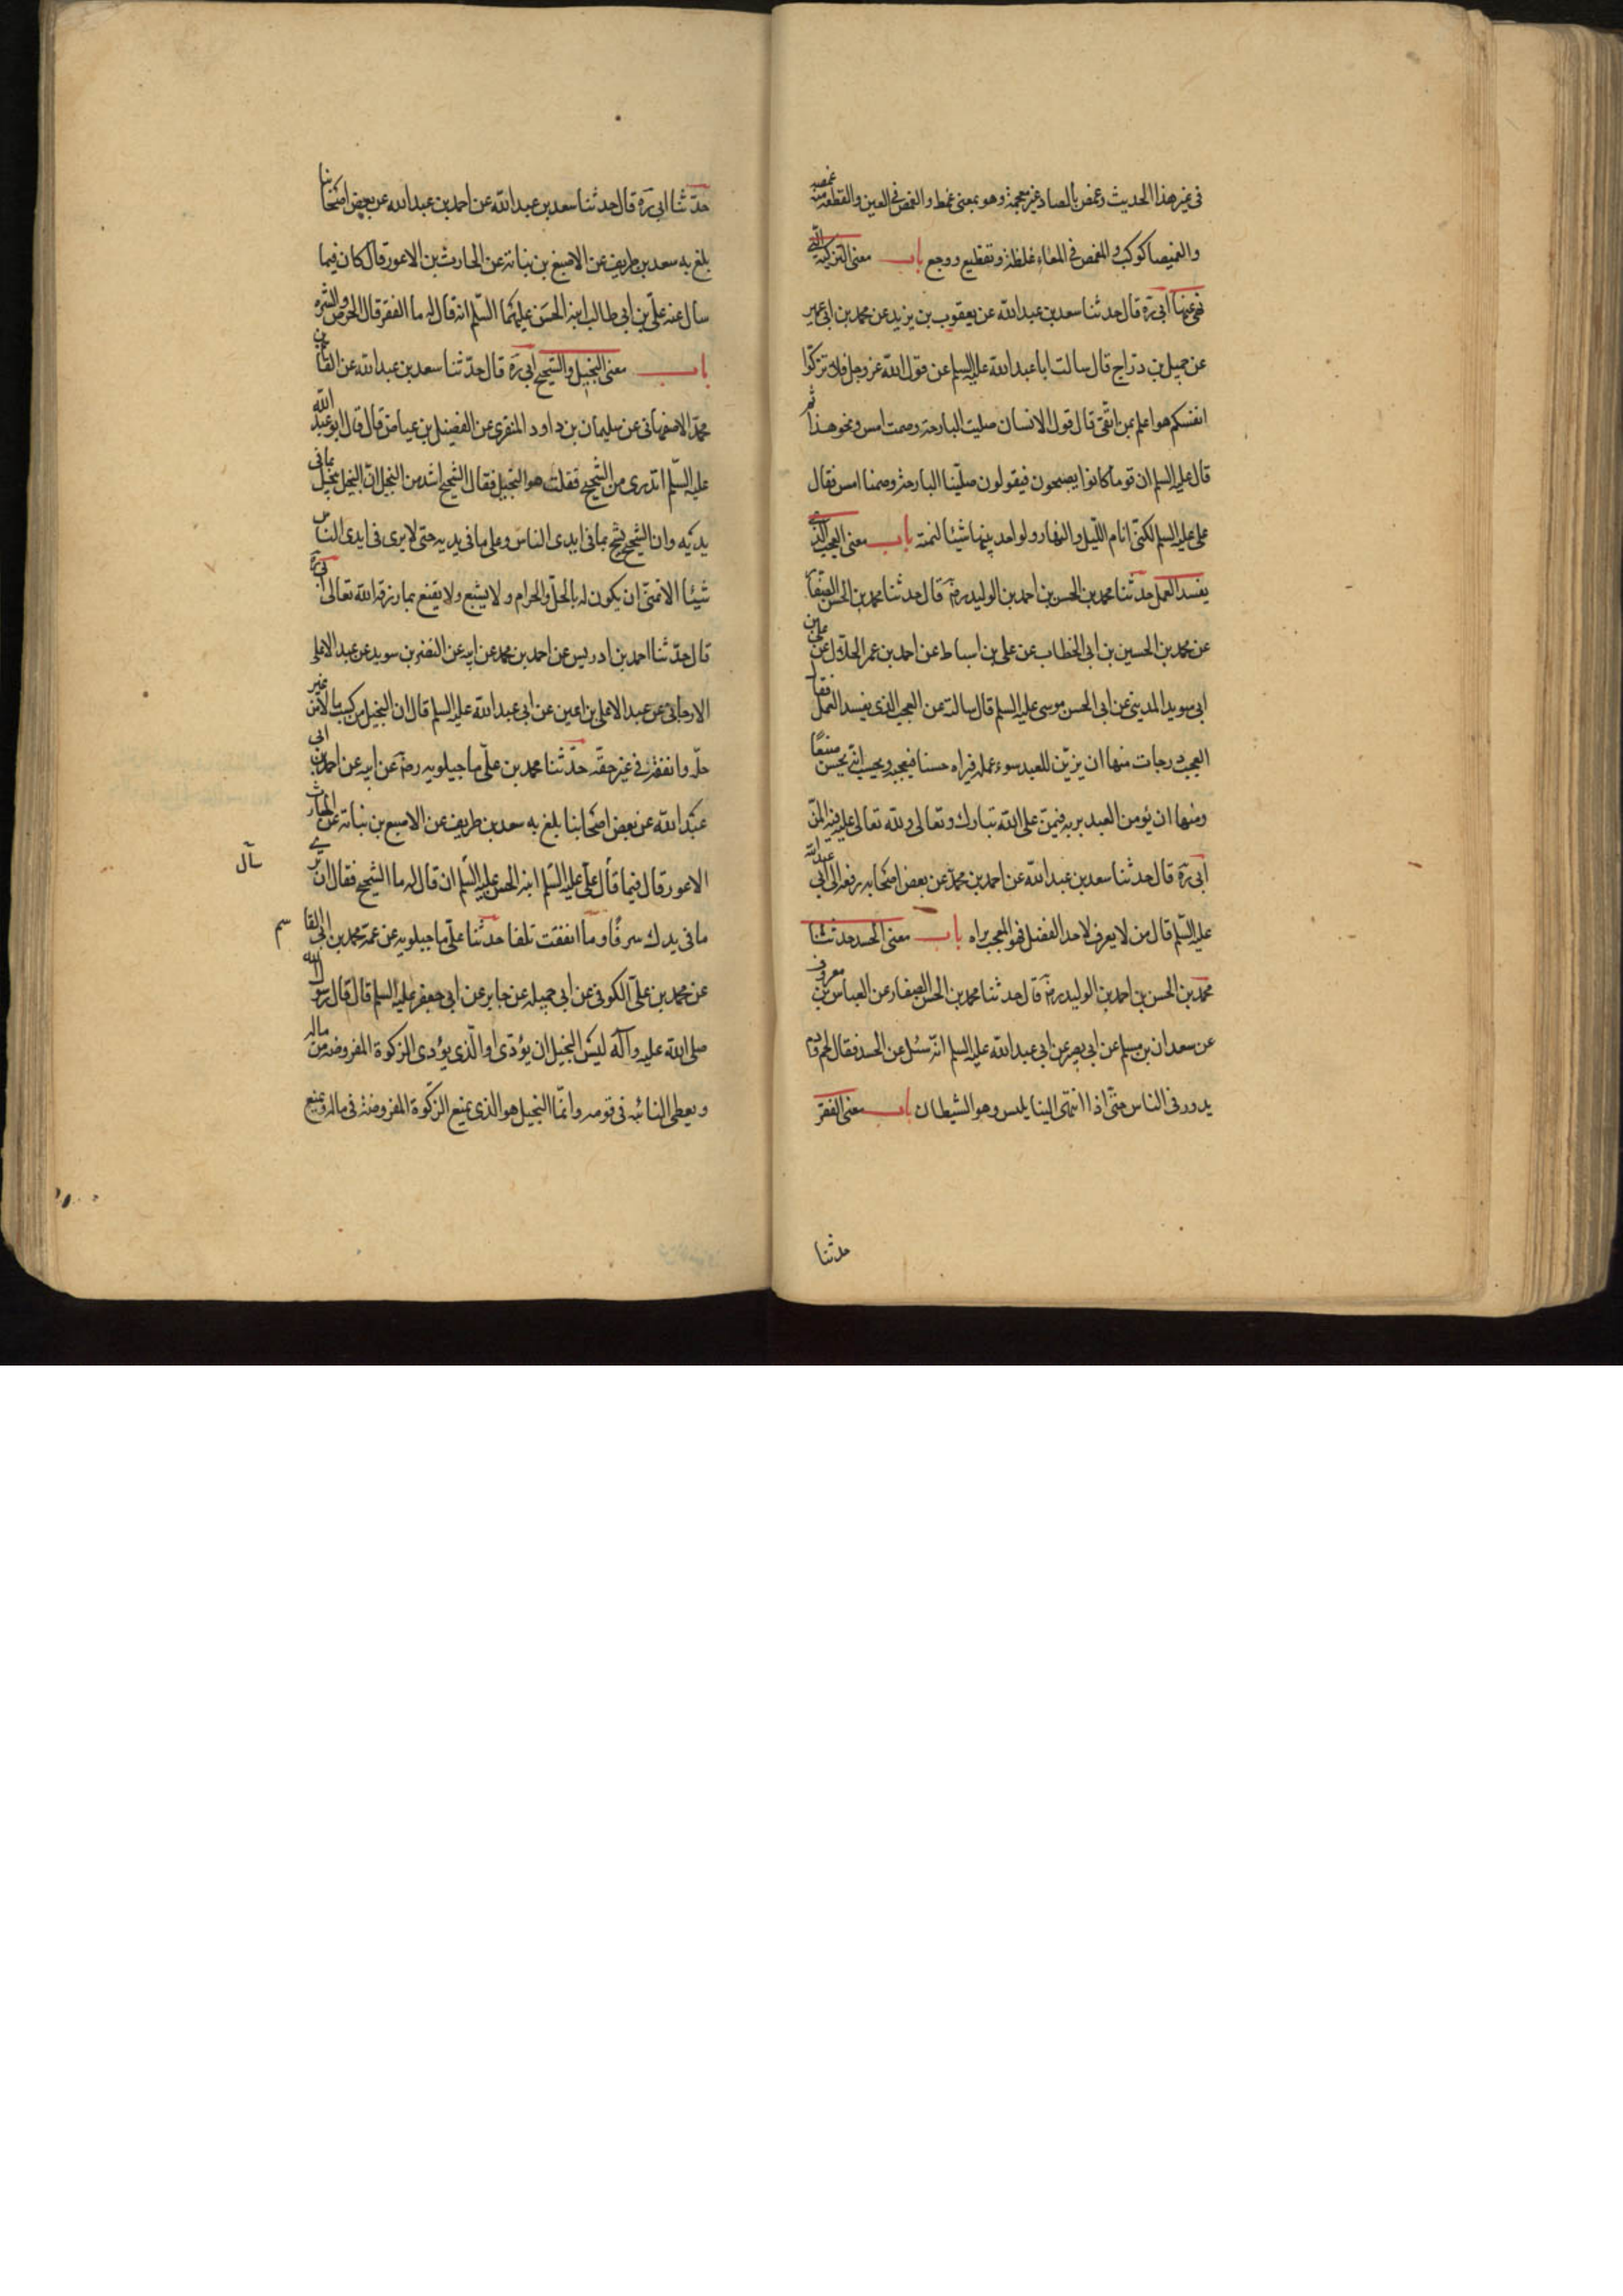 في غير هذا الحديث وغمص بالصاد غير معجمة وهو بمعنى غمط والغمص في العين والقطعة منه غمصه
والغميصا كوكب والمغمص في المعاء غلظة وتقطيع ووجع باب معنى التزكية التي
نهى عنها ابى ره قال حدثنا سعد بن عبد الله عن يعقوب بن يزيد عن محمد بن ابى عمير
عن جميل بن دراج قال سالت ابا عبد الله عليه السلم عن قول الله عز وجل فلا تزكوا
انفسكم هو اعلم بمن اتقى قال قول الانسان صليت البارحة وصمت امس ونحو هذا ثم
قال عليه السلم ان قوما كانوا يصبحون فيقولون صلينا البارحة وصمنا امس فقال
على عليه السلم لكنى انام الليل والنهار ولو اجد بينهما شيئا لنمته باب معنى العجب الذى
يفسد العمل حدثنا محمد بن الحسن بن احمد بن الوليد رضه قال حدثنا محمد بن الحسن الصفار
عن محمد بن الحسين بن ابى الخطاب عن على بن اسباط عن احمد بن عمر الحلال عن على بن
ابى سويد المدينى عن ابى الحسن موسى عليه السلم قال سالته عن العجب الذى يفسد العمل فقال
العجب درجات منها ان يزين للعبد سوء عمله فيراه حسنا فيعجبه ويحسب انه يحسن صنعا
ومنها ان يؤمن العبد بربه فيمن على الله تبارك وتعالى ولله تعالى عليه فيه المن
ابى ره قال حدثنا سعد بن عبد الله عن احمد بن محمد عن بعض اصحابه رفعه الى ابى عبد الله
عليه السلم قال من لا يعرف لاحد الفضل فهو المعجب براه باب معنى الحسد حدثنا
محمد بن الحسن بن احمد بن الوليد رضه قال حدثنا محمد بن الحسن الصفار عن العباس بن معروف
عن سعدان بن مسلم عن ابى بصير عن ابى عبد الله عليه السلم انه سئل عن الحسد فقال لحم ودم
يدور فى الناس حتى اذا انتهى الينا يلبس وهو الشيطان باب معنى الفقر
حدثنا
حدثنا ابى ره قال حدثنا سعد بن عبد الله عن احمد بن عبد الله عن بعض اصحابنا
بلغ به سعد بن طريف عن الاصبغ بن نباته عن الحارث بن الاعور قال كان فيما
سال عنه على بن ابى طالب ابنه الحسن عليهما السلم انه قال له ما الفقر قال الحرص والشره
باب معنى البخيل والشحيح ابى ره قال حدثنا سعد بن عبد الله عن القاسم بن
محمد الاصفهانى عن سليمان بن داود المنقرى عن الفضيل بن عياض قال قال ابو عبد الله
عليه السلم اتدرى من الشحيح فقلت هو البخيل فقال الشحيح اشد من البخيل ان البخيل يبخل بما فى
يديه وان الشحيح يشح بما فى ايدى الناس وعلى ما فى يديه حتى لا يرى فى ايدى الناس
شيئا الا تمنى ان يكون له بالحل والحرام ولا يشبع ولا يقنع بما رزقه الله تعالى ابى ره
قال حدثنا احمد بن ادريس عن احمد بن محمد عن ابيه عن النضر بن سويد عن عبد الاعلى
الارجانى عن عبد الاعلى بن اعين عن ابى عبد الله عليه السلم قال ان البخيل من كسب مالا من غير
حله وانفقه فى غير حقه حدثنا محمد بن على ماجيلويه رضه عن ابيه عن احمد بن ابى
عبد الله عن بعض اصحابنا بلغ به سعد بن طريف عن الاصبغ بن نباته عن الحارث
الاعور قال فيما قال على عليه السلم ابنه الحسن عليه السلم ان قال له ما الشحيح فقال ان ترى
سآل
ما فى يدك سرفا وما انفقت تلفا حدثنا على ماجيلويه عن عمه محمد بن ابى القاسم
عن محمد بن على الكوفى عن ابى جميله عن جابر عن ابى جعفر عليه السلم قال قال رسول الله
صلى الله عليه وآله ليس البخيل ان يؤدى او الذى يؤدى الزكوة المفروضة من ماله
ويعطى النائبه فى قومه وانما البخيل هو الذى يمنع الزكوة المفروضة فى ماله ويمنع